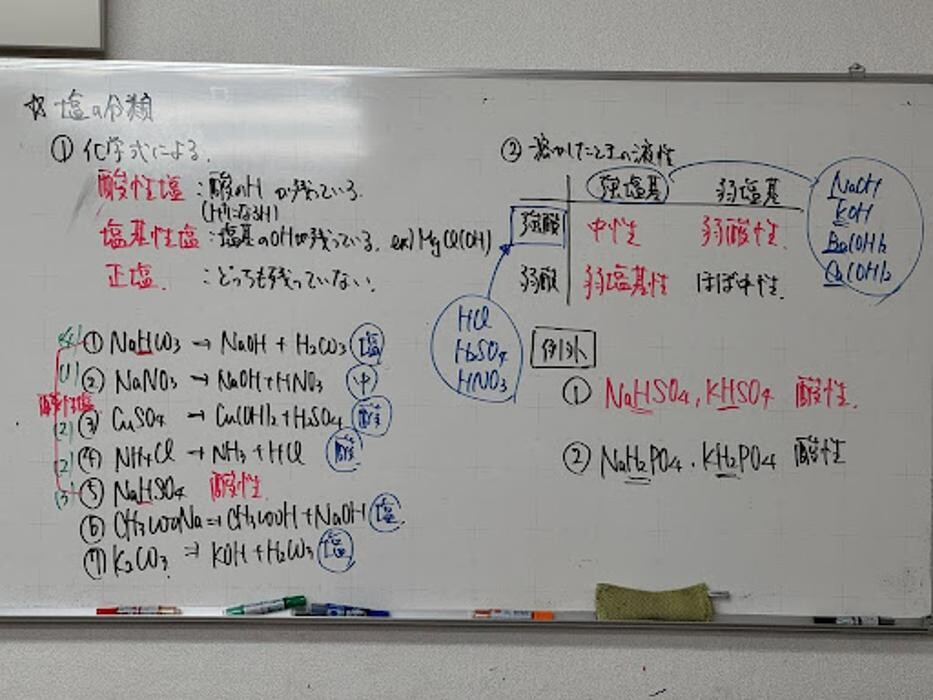 ☆ 塩の分類
① 化学式による.
酸性塩 : 酸のH が残っている.
(H⁺になるH)
塩基性塩 : 塩基のOHが残っている. ex) MgCl(OH)
正塩. : どっちも残っていない.
(4) ① NaHCO3 → NaOH + H2CO3 塩
(1) ② NaNO3 → NaOH + HNO3 中
酸性塩
(2) ③ CuSO4 → Cu(OH)2 + H2SO4 酸
(2) ④ NH4Cl → NH3 + HCl 酸
(3) ⑤ NaHSO4 酸性.
⑥ CH3COONa → CH3COOH + NaOH 塩
⑦ K2CO3 → KOH + H2CO3 塩
② 溶かしたときの液性
強塩基 弱塩基
強酸 中性 弱酸性.
弱酸 弱塩基性 ほぼ中性.
NaOH
KOH
Ba(OH)2
Ca(OH)2
HCl
H2SO4
HNO3
例外
① NaHSO4, KHSO4 酸性.
② NaH2PO4. KH2PO4 酸性